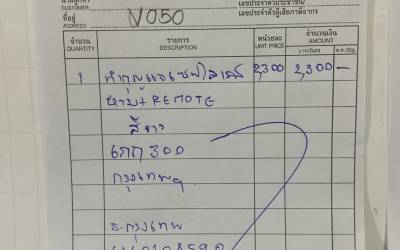 เลขประจำตัวประชาชน/
CUSTOMER:
เลขประจำตัวผู้เสียภาษีอากร
ที่อยู่
ADDRESS:
V050
จำนวน QUANTITY รายการ DESCRIPTION หน่วยละ UNIT PRICE จำนวนเงิน AMOUNT
บาท/Baht ส.ต./Stg.
1 ทำกุญแจ 2,300 2,300 -
REMOTE
สีขาว
300
กรุงเทพฯ
ธ.กรุงเทพ